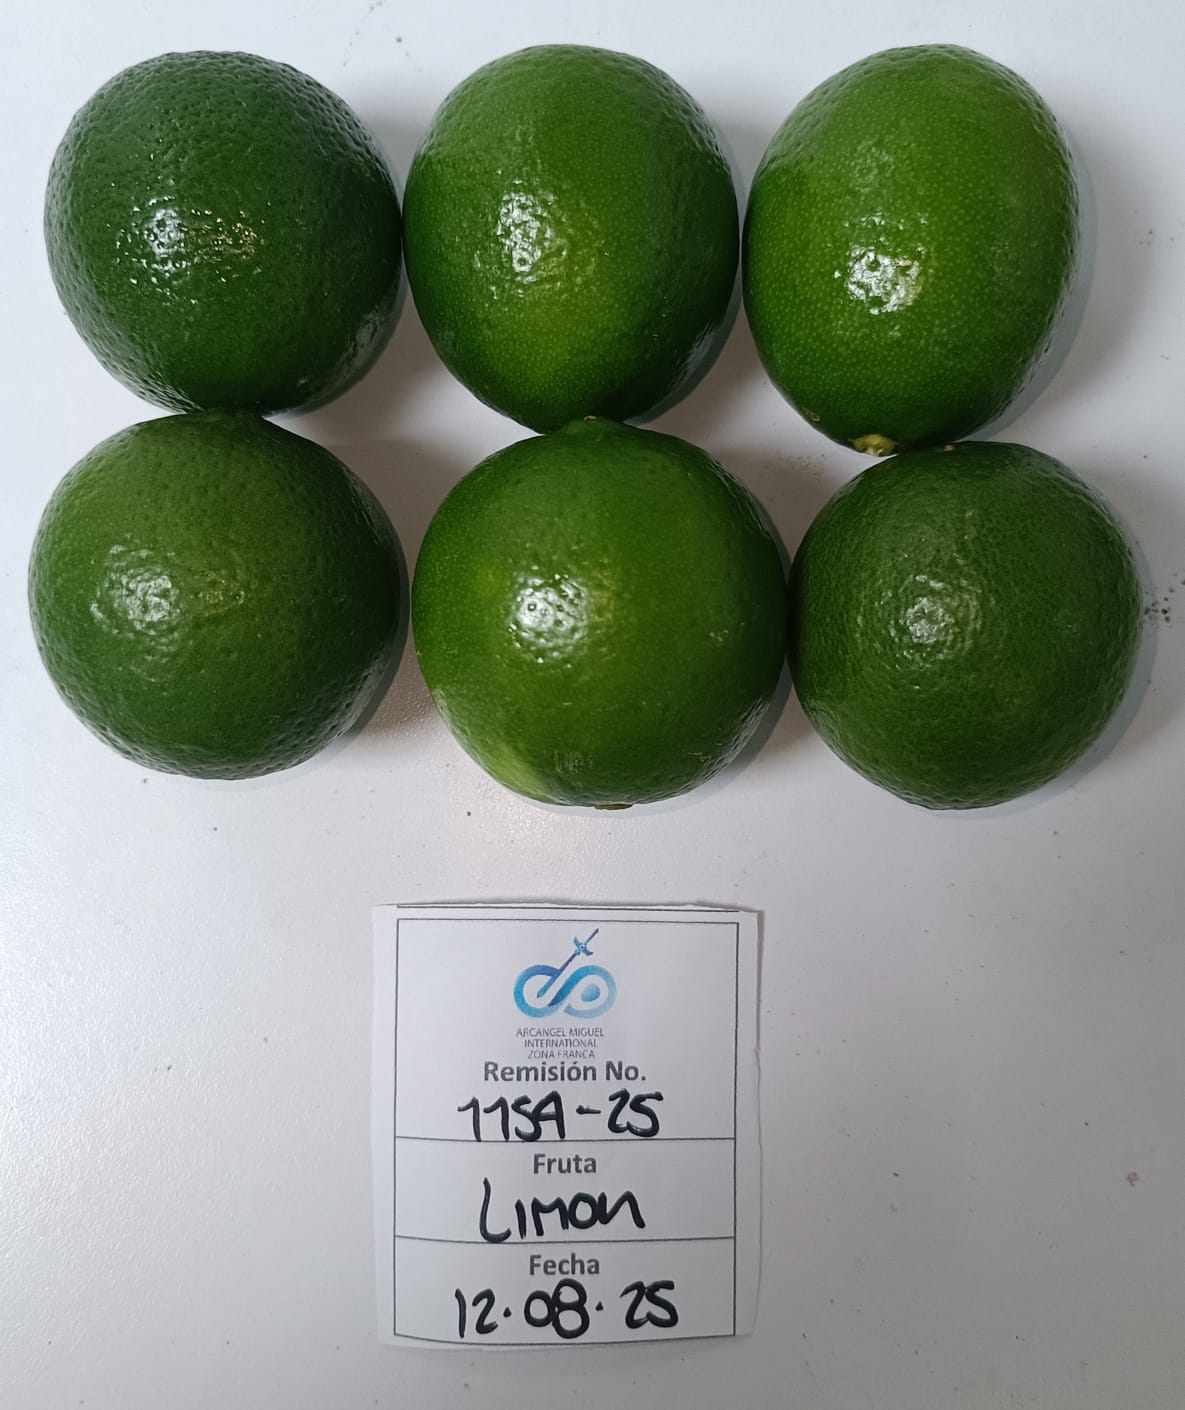 ARCANGEL MIGUEL
INTERNATIONAL
ZONA FRANCA
Remisión No.
1159-25
Fruta
LIMON
Fecha
12.08.25